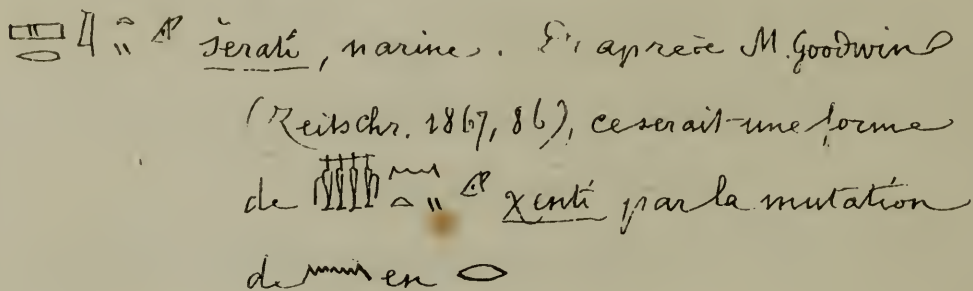 šerati, narine. D'après M. Goodwin
(Zeitschr. 1867, 86), ce serait une forme
de 𓏃𓈖𓏏𓏭𓂉 χenti par la mutation
de 𓈖 en 𓂋